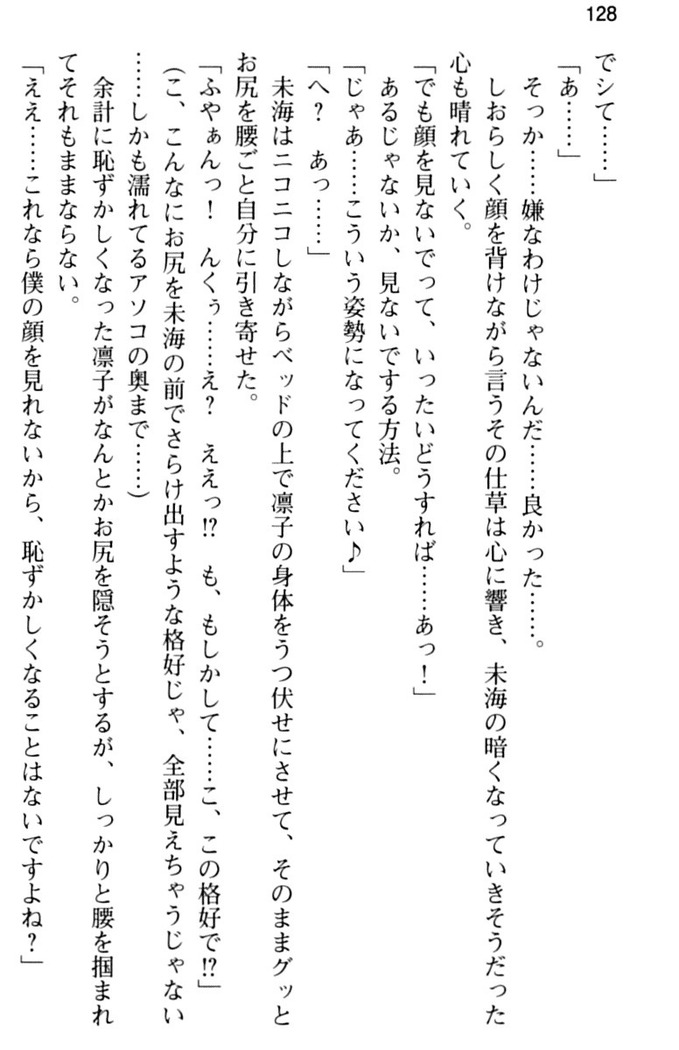 128
でシて……」
「あ……」
　そっか……嫌なわけじゃないんだ……良かった……。
　しおらしく顔を背けながら言うその仕草は心に響き、未海の暗くなっていきそうだった
心も晴れていく。
「でも顔を見ないでって、いったいどうすれば……あっ！」
　あるじゃないか、見ないでする方法。
「じゃあ……こういう姿勢になってください♪」
「へ？　あっ……」
　未海はニコニコしながらベッドの上で凛子の身体をうつ伏せにさせて、そのままグッと
お尻を腰ごと自分に引き寄せた。
「ふやぁんっ！　んくぅ……え？　ええっ!?　も、もしかして……こ、この格好で!?」
（こ、こんなにお尻を未海の前でさらけ出すような格好じゃ、全部見えちゃうじゃない
……しかも濡れてるアソコの奥まで……）
　余計に恥ずかしくなった凛子がなんとかお尻を隠そうとするが、しっかりと腰を掴まれ
てそれもままならない。
「ええ……これなら僕の顔を見れないから、恥ずかしくなることはないですよね？」